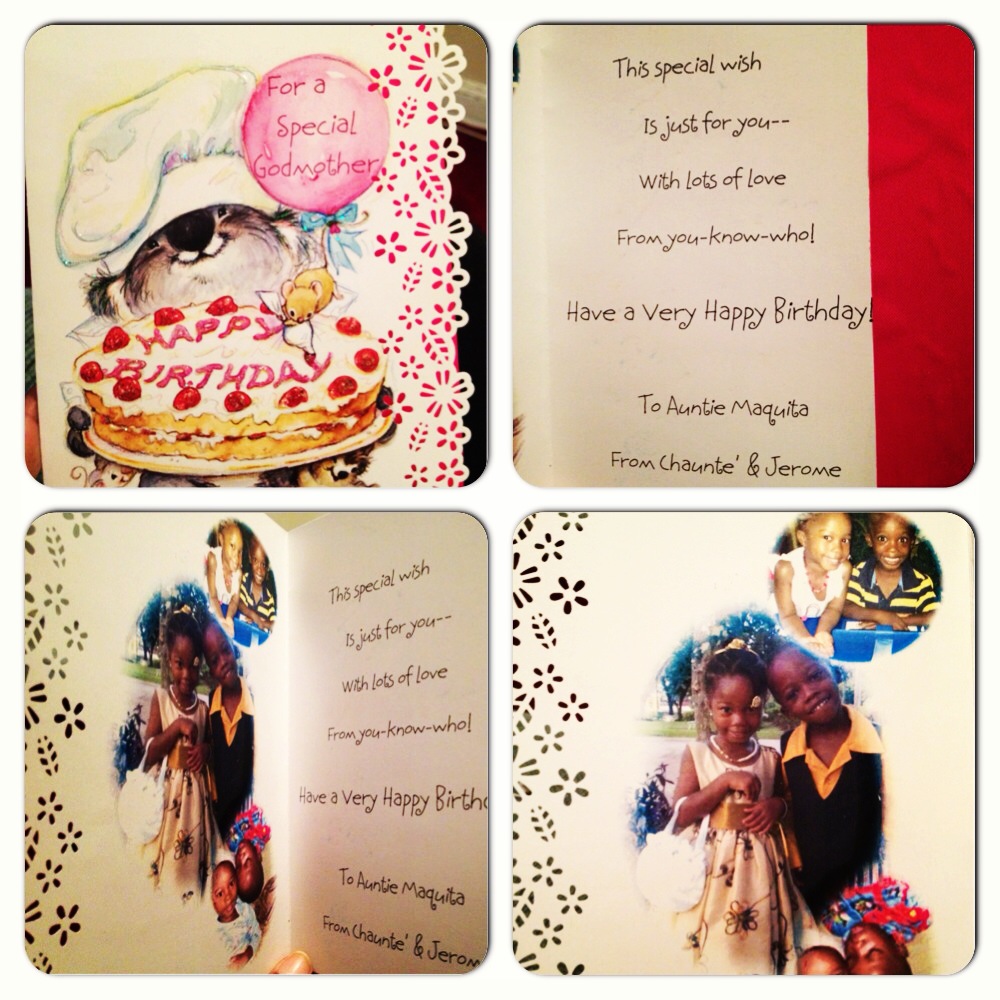 For a
Special
Godmother
HAPPY
BIRTHDAY
This special wish
Is just for you--
With lots of love
From you-know-who!
Have a Very Happy Birthday!
To Auntie Maquita
From Chaunte' & Jerome
This special wish
Is just for you--
With lots of love
From you-know-who!
Have a Very Happy Birthd
To Auntie Maquita
From Chaunte' & Jerom